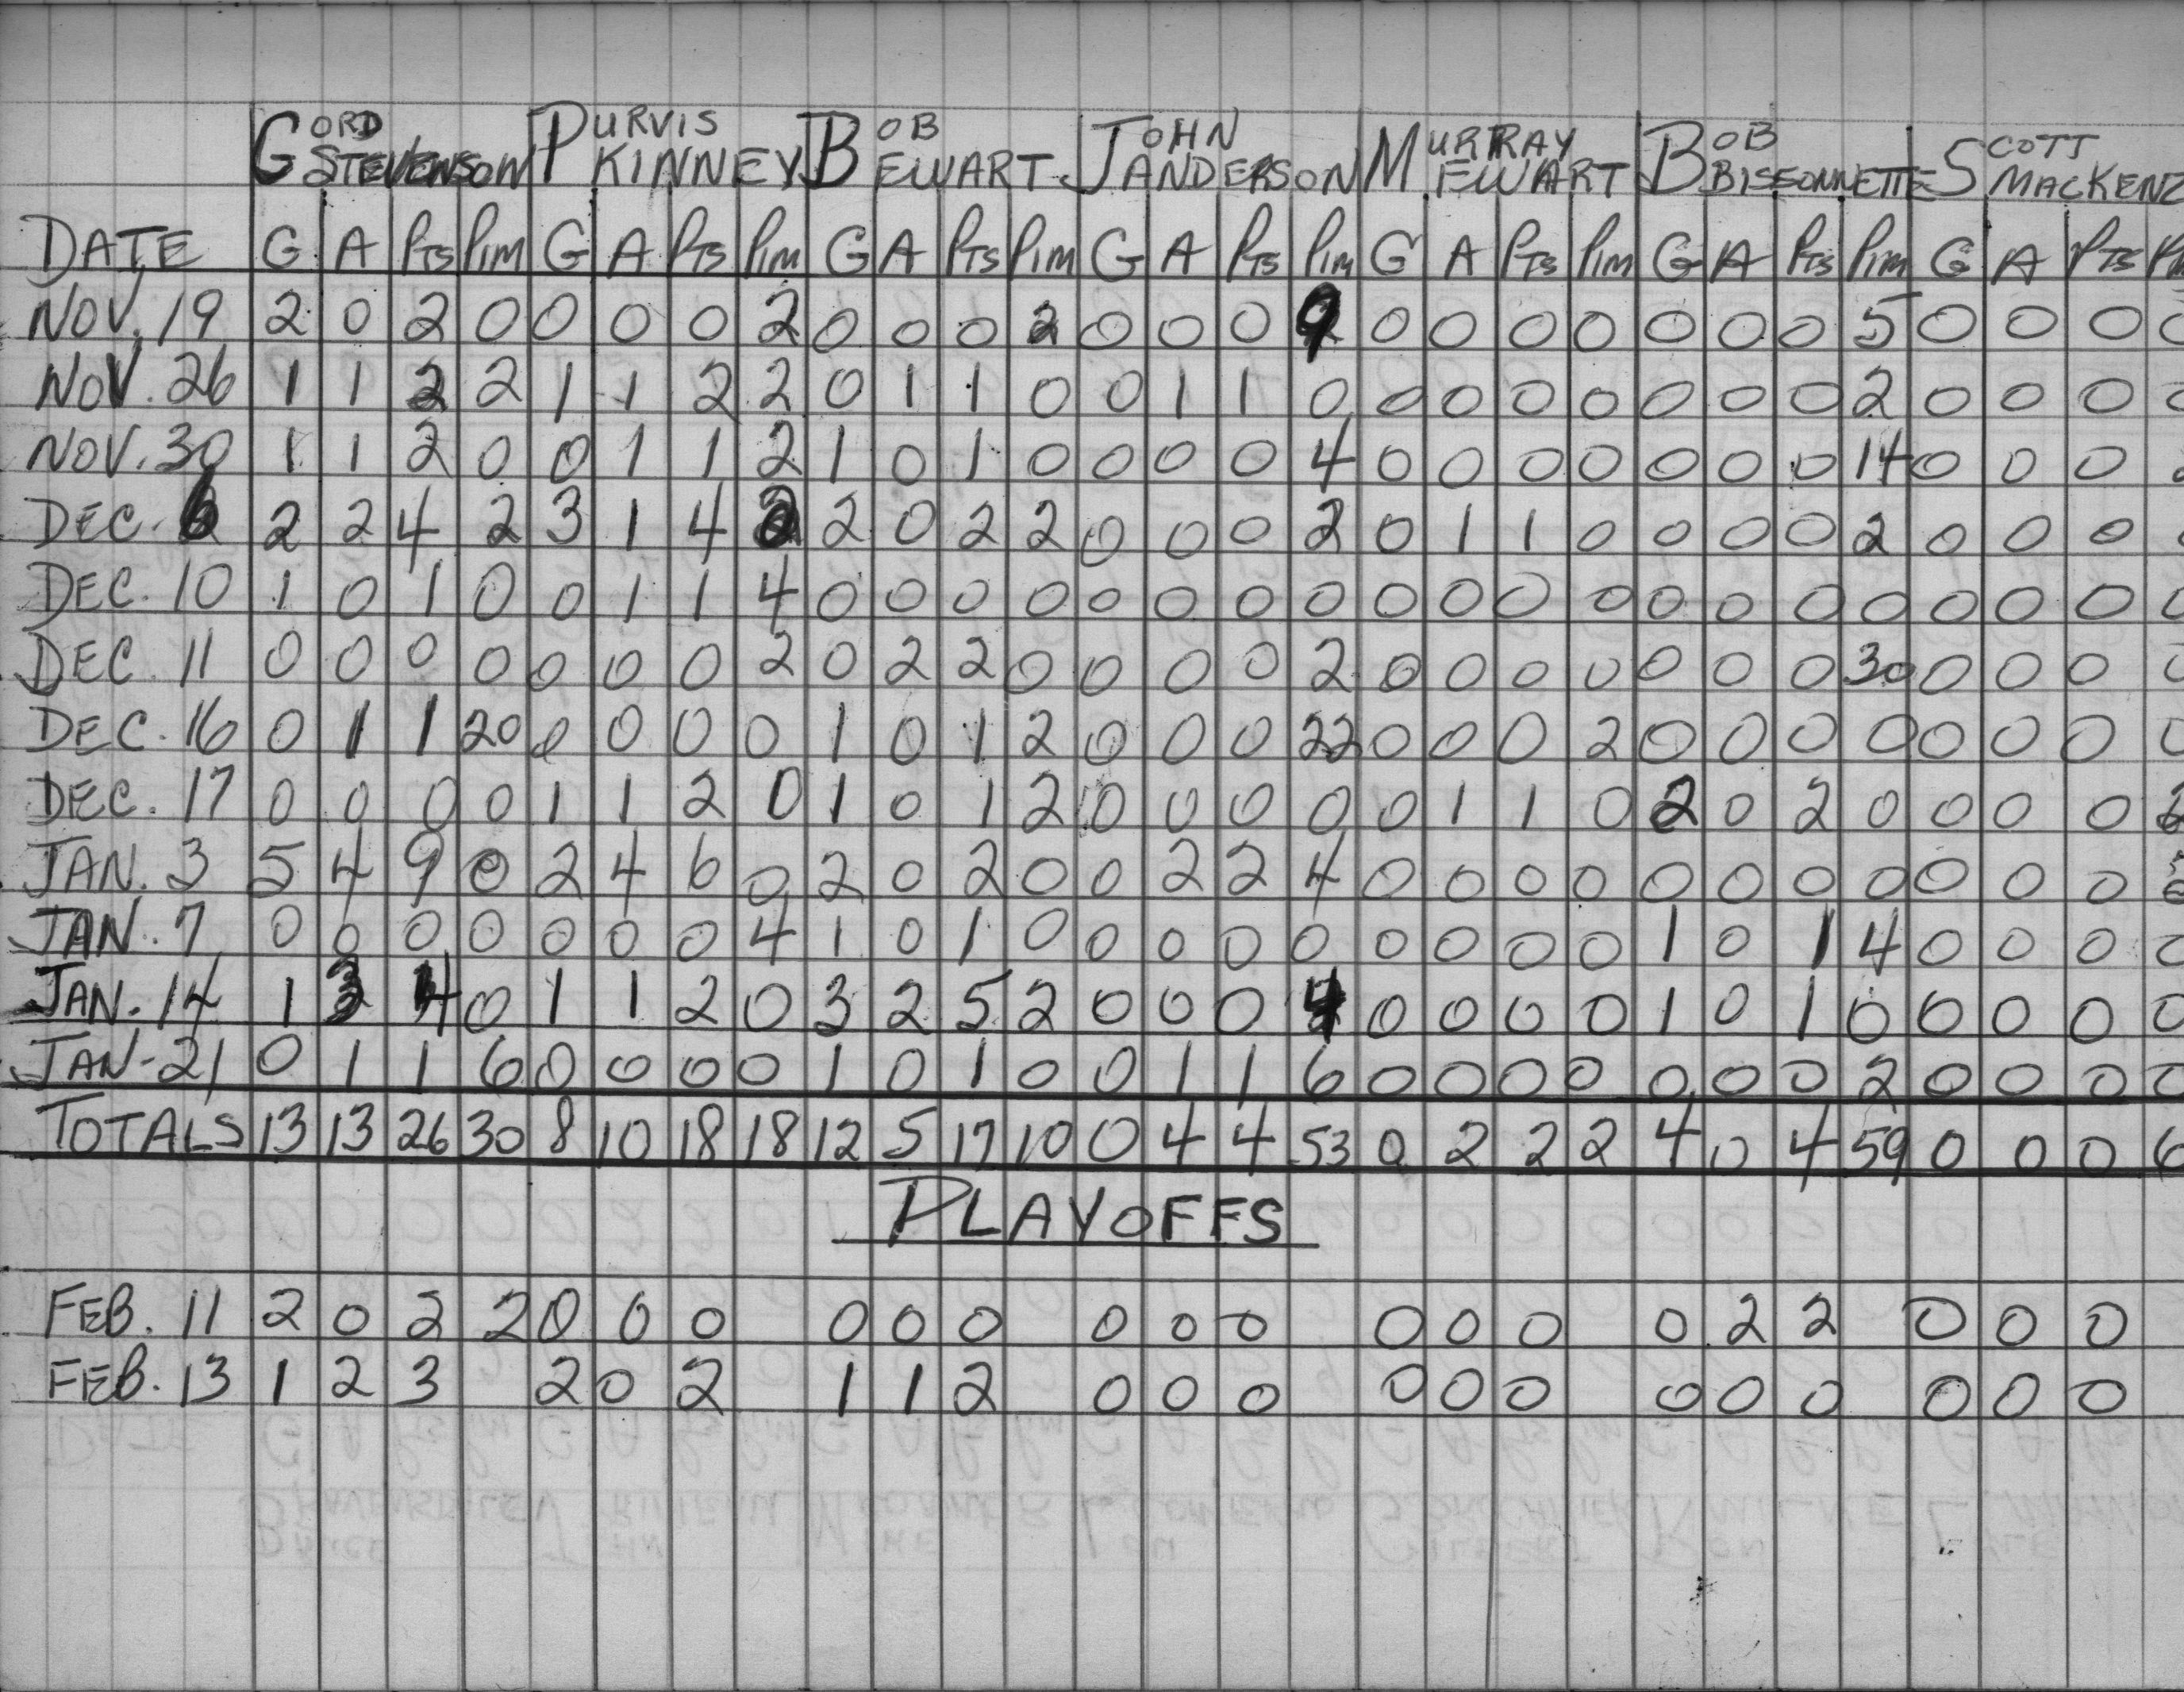 GORD STEVENSON PURVIS KINNEY BOB EWART JOHN ANDERSON MURRAY EWART BOB BISSONNETTE SCOTT MACKENZ
DATE G A PTS PIM G A PTS PIM G A PTS PIM G A PTS PIM G A PTS PIM G A PTS PIM G A PTS
NOV. 19 2 0 2 0 0 0 0 2 0 0 0 2 0 0 0 9 0 0 0 0 0 0 0 5 0 0 0 0
NOV. 26 1 1 2 2 1 1 2 2 0 1 1 0 0 1 1 0 0 0 0 0 0 0 0 2 0 0 0 0
NOV. 30 1 1 2 0 0 1 1 2 1 0 1 0 0 0 0 4 0 0 0 0 0 0 0 14 0 0 0
DEC. 6 2 2 4 2 3 1 4 2 2 0 2 2 0 0 0 2 0 1 1 0 0 0 0 2 0 0 0
DEC. 10 1 0 1 0 0 1 1 4 0 0 0 0 0 0 0 0 0 0 0 0 0 0 0 0 0 0 0 0
DEC. 11 0 0 0 0 0 0 0 2 0 2 2 0 0 0 0 2 0 0 0 0 0 0 0 30 0 0 0 0
DEC. 16 0 1 1 20 0 0 0 0 1 0 1 2 0 0 0 22 0 0 0 2 0 0 0 0 0 0 0 0
DEC. 17 0 0 0 0 1 1 2 0 1 0 1 2 0 0 0 0 0 1 1 0 2 0 2 0 0 0 0 2
JAN. 3 5 4 9 0 2 4 6 0 2 0 2 0 0 2 2 4 0 0 0 0 0 0 0 0 0 0 0
JAN. 7 0 0 0 0 0 0 0 4 1 0 1 0 0 0 0 0 0 0 0 0 1 0 1 4 0 0 0 0
JAN. 14 1 3 4 0 1 1 2 0 3 2 5 2 0 0 0 4 0 0 0 0 1 0 1 0 0 0 0 0
JAN-21 0 1 1 6 0 0 0 0 1 0 1 0 0 1 1 6 0 0 0 0 0 0 0 2 0 0 0 0
TOTALS 13 13 26 30 8 10 18 18 12 5 17 10 0 4 4 53 0 2 2 2 4 0 4 59 0 0 0 6
PLAYOFFS
FEB. 11 2 0 2 2 0 0 0 0 0 0 0 0 0 0 0 0 0 2 2 0 0 0
FEB. 13 1 2 3 2 0 2 1 1 2 0 0 0 0 0 0 0 0 0 0 0 0